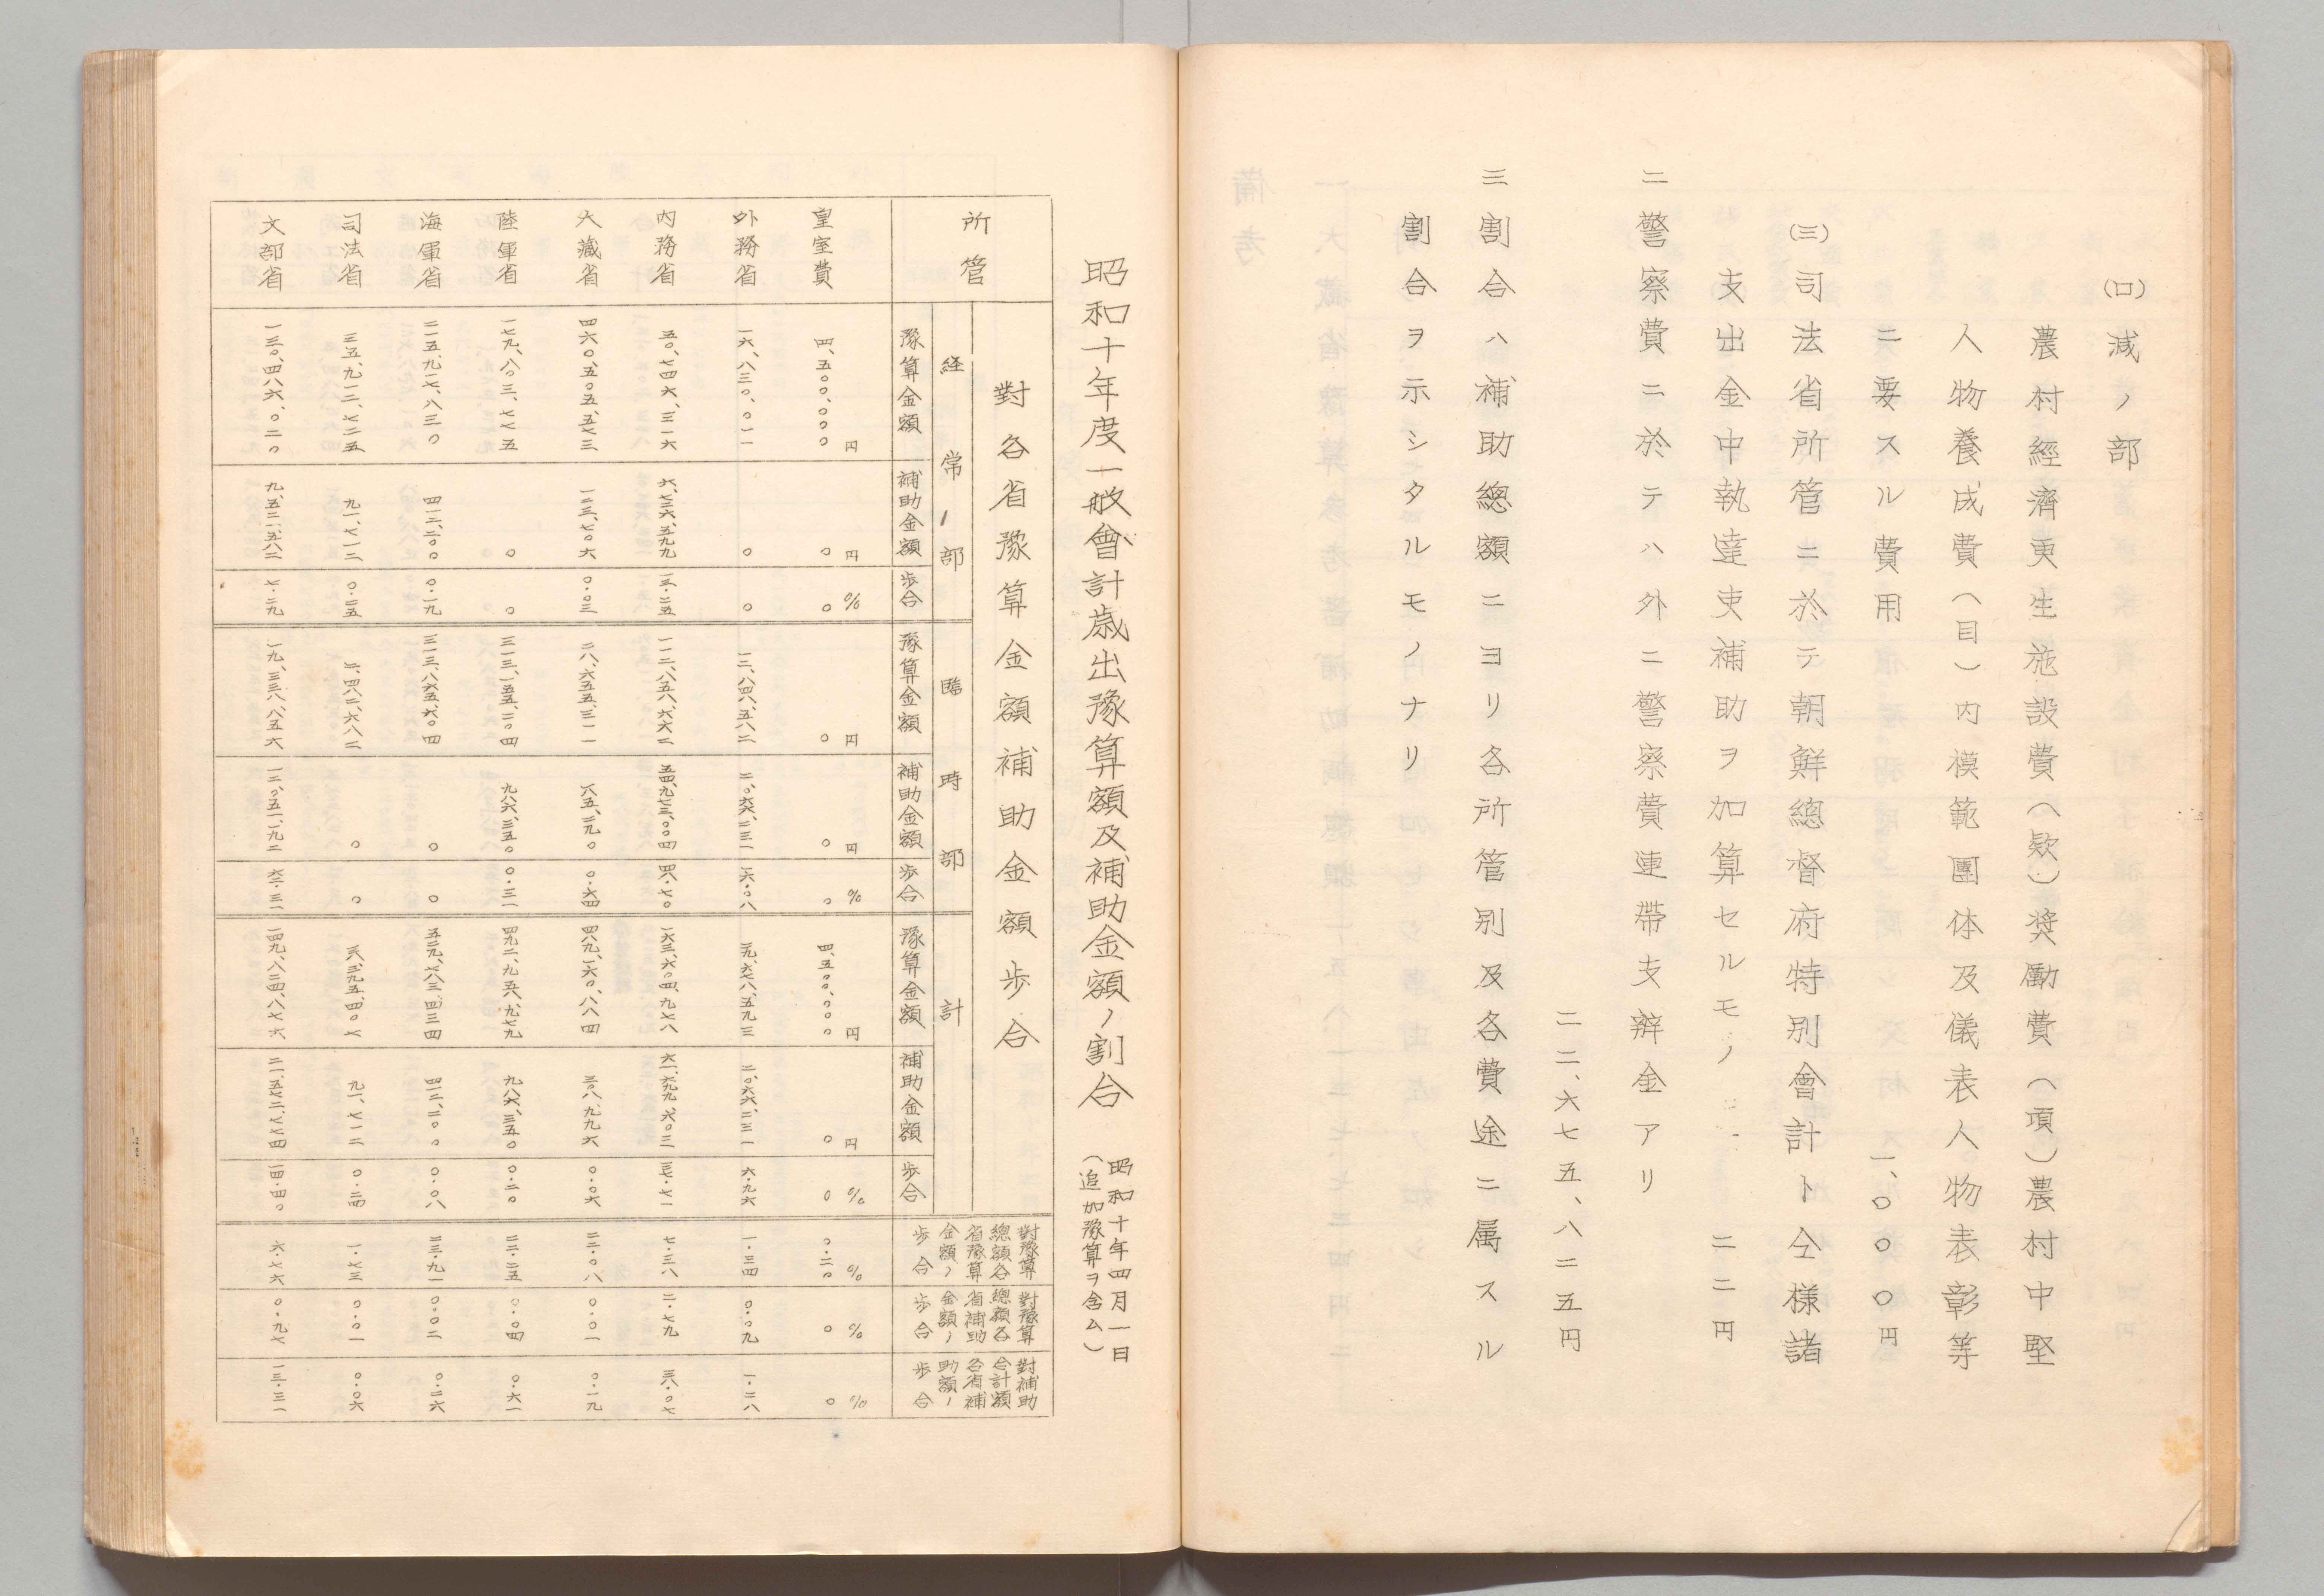 (ロ) 減ノ部
農村經濟更生施設費(欵)奬勵費(項)農村中堅
人物養成費(目)内模範團体及儀表人物表彰等
ニ要スル費用 一、〇〇〇円
(三)司法省所管ニ於テ朝鮮總督府特別會計ト仝樣諸
支出金中執達吏補助ヲ加算セルモノ 二二円
二警察費ニ於テハ外ニ警察費連帶支辨金アリ
二二、六七五、八二五円
三割合ハ補助總額ニヨリ各所管別及各費途ニ属スル
割合ヲ示シタルモノナリ
昭和十年度一般會計歳出豫算額及補助金額ノ割合
昭和十年四月一日
(追加豫算ヲ含ム)
所管
對各省豫算金額補助金額歩合
經常ノ部 臨時部 計
豫算金額 補助金額 歩合 豫算金額 補助金額 歩合 豫算金額 補助金額 歩合
對豫算總額各省豫算金額ノ歩合
對豫算總額各省補助金額ノ歩合
對補助合計額各省補助額ノ歩合
円 円 % 円 円 % 円 円 % % % %
皇室費 四、五〇〇、〇〇〇 〇 〇 〇 〇 〇 四、五〇〇、〇〇〇 〇 〇 〇・二〇 〇 〇
外務省 一六、八三〇、〇一一 〇 〇 一二、八四八、五八二 二、〇六六、二三一 一六・〇八 二九、六七八、五九三 二、〇六六、二三一 六・九六 一・三四 〇・〇九 一・二八
内務省 五〇、七四六、三一六 六、七二六、五九九 一三・二五 一一二、八五八、六六二 五四、九七三、〇〇四 四八・七〇 一六三、六〇四、九七八 六一、六九九、六〇三 三七・七一 七・三八 二・七九 三八・〇七
大藏省 四六〇、五〇五、五七三 一二三、七〇六 〇・〇三 二八、六五五、三一一 一八五、二九〇 〇・六四 四八九、一六〇、八八四 三〇八、九九六 〇・〇六 二二・〇八 〇・〇一 〇・一九
陸軍省 一七九、八〇三、七七五 〇 〇 三一三、一五五、二〇四 九八六、三五〇 〇・三一 四九二、九五八、九七九 九八六、三五〇 〇・二〇 二二・二五 〇・〇四 〇・六一
海軍省 二一五、九一七、八三〇 四一二、二〇〇 〇・一九 三一三、八六五、六〇四 〇 〇 五二九、七八三、四三四 四一二、二〇〇 〇・〇八 二三・九一 〇・〇二 〇・二六
司法省 三五、九一二、七二五 九一、七一二 〇・二五 二、四八二、六八二 〇 〇 三八、三九五、四〇七 九一、七一二 〇・二四 一・七三 〇・〇一 〇・〇六
文部省 一三〇、四八六、〇二〇 九、五二一、五八二 七・二九 一九、三三八、八五六 一二、〇五一、一九二 六二・三一 一四九、八二四、八七六 二一、五七二、七七四 一四・四〇 六・七六 〇・九七 一三・三一